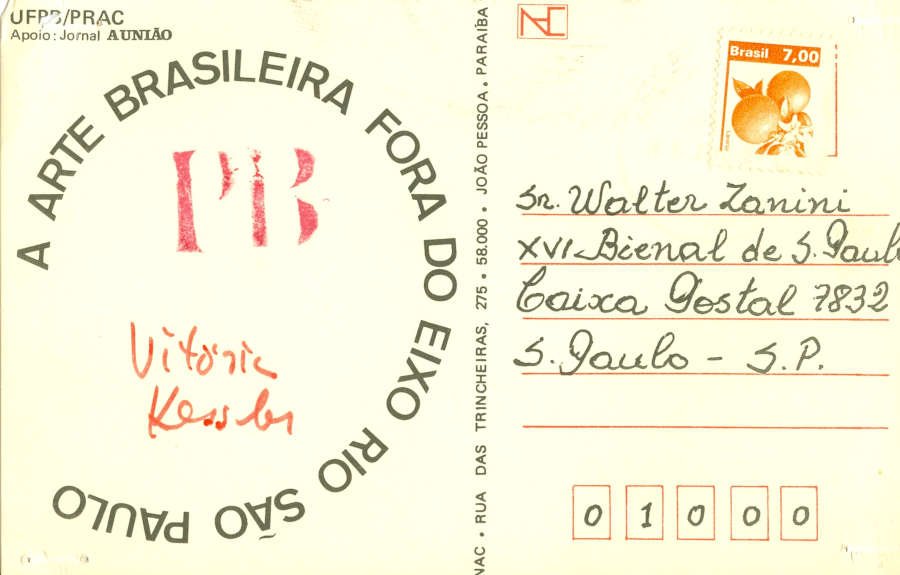 UFPB/PRAC
Apoio: Jornal A UNIÃO
A ARTE BRASILEIRA FORA DO EIXO RIO SÃO PAULO
PB
Vitória
Kessler
NAC • RUA DAS TRINCHEIRAS, 275 • 58.000 • JOÃO PESSOA • PARAÍBA
NAC
Brasil 7,00
Sr. Walter Zanini
XVI Bienal de S. Paulo
Caixa Postal 7832
S. Paulo - S.P.
01000